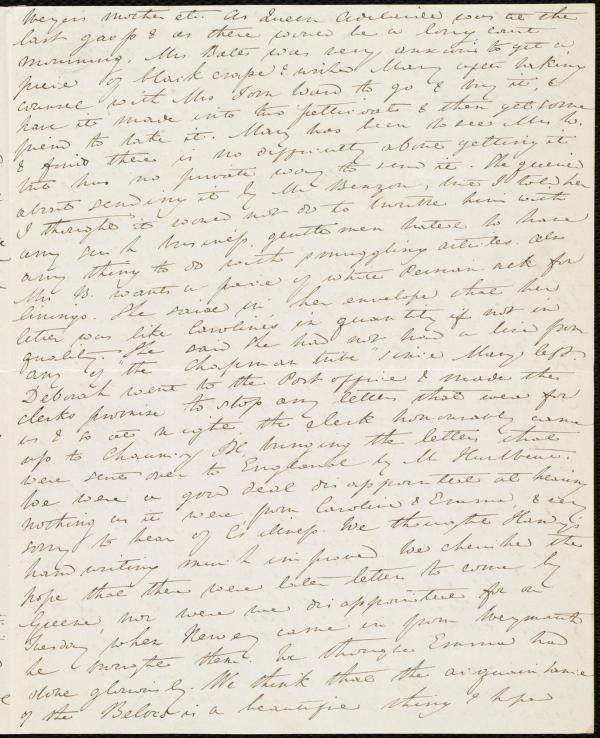 Meyers mother etc. As Queen Adelaide was at the
last gasp & as there would be a long court
mourning, Mrs Bates was very anxious to get a
piece of black crape & wished Mary after taking
counsel with Mrs Torn Ward to go & buy it, &
have it made into two petticoats & then get some
friend to take it. Mary has been to see Mrs W.
& finds there is no difficulty about getting it
but has no private way to send it. She queried
about sending it by Mr Benzon, but I told her
I thought it would not do to trouble him with
any such business, gentlemen hated to have
any thing to do with smuggling articles. Also
Mrs B. wants a piece of white Persian ask for
linings. She said in her envelope that her
letter was like Caroline's in quantity if not in
quality. She said she had not had a line from
any of "the Chapman tribe" since Mary left.
Deborah went to the Post office & made the
clerks promise to stop any letters that were for
us & so at night the clerk honourably came
up to Chauncy Pl, bringing the letters that
were sent over to England by M Hurlbeur.
We were a good deal disappointed at hearing
nothing as it were from Caroline & Emma, & very
sorry to hear of C's illness. We thought Hang's
handwriting much improved. We cherished the
hope that there were later letters to come by
Greene, nor were we disappointed for on
Tuesday when Hervey came in from Weymouth
he brought them. We thought Emma had
done gloriously. We think that the acquaintance
of the Belocs is a beautiful thing & hope